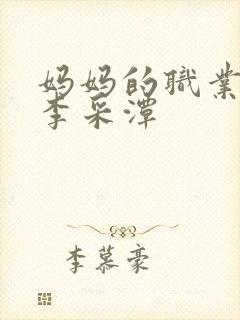 妈妈的职業
李采潭
李慕豪